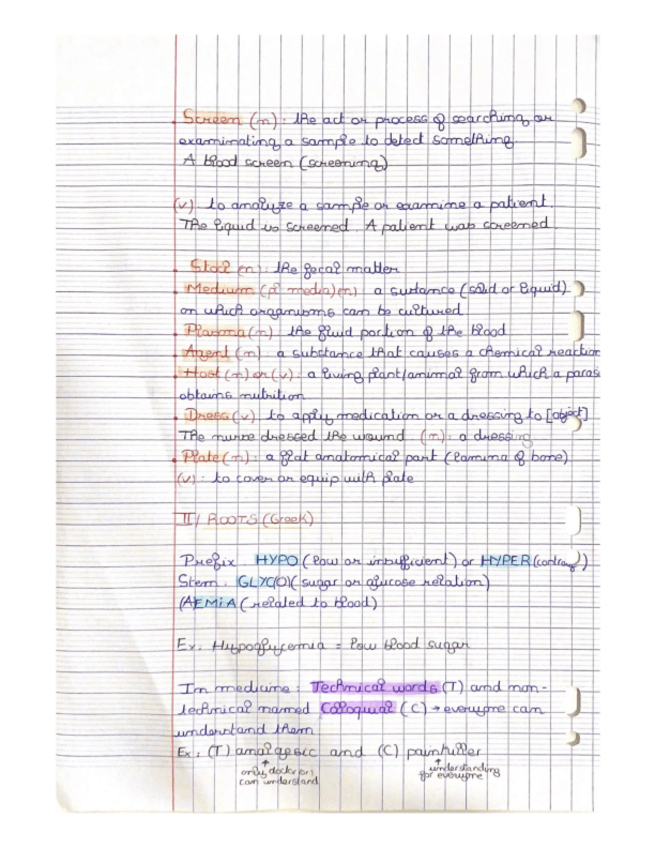 Screen (n) : the act or process of searching or
examinating a sample to detect something.
A blood screen (screening)
(v) to analyze a sample or examine a patient.
The liquid is screened. A patient was screened
Stool (n) : the fecal matter
Medium (pl media) (n) a sustance (solid or liquid)
on which organisms can be cultured
Plasma (n) the fluid portion of the blood
Agent (n) : a substance that causes a chemical reaction
Host (n) or (v) : a living plant/animal from which a paras
obtains nutrition
Dress (v) to apply medication or a dressing to [object]
The nurse dressed the wound (n) : a dressing
Plate (n) : a flat anatomical part (lamina of bone)
(v) : to cover or equip with plate
II/ ROOTS (Greek)
Prefix HYPO (low or insufficient) or HYPER (contrary)
Stem GLYC(O) (sugar or glucose relation)
(AEMiA (related to blood)
Ex. Hypoglycemia = low blood sugar
In medicine : Technical words (T) and non-
technical named Colloquial (C) → everyone can
understand them
Ex : (T) analgesic and (C) painkiller
↑ ↑
only doctor(s) understanding
can understand for everyone